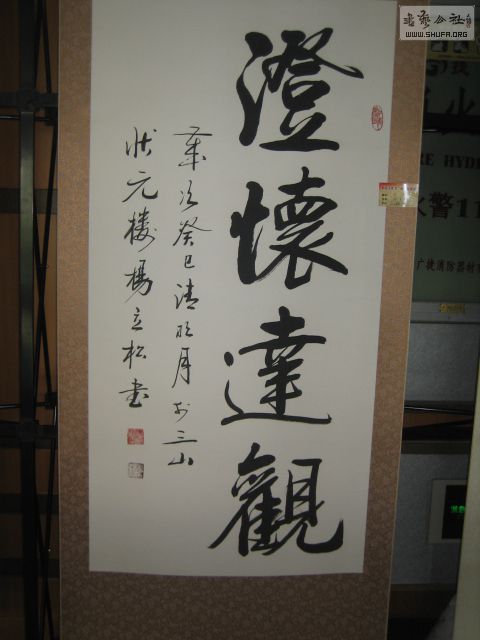 澄懷達觀
歲次癸巳清明月於三山
狀元樓楊立松書
書藝公社
WWW.SHUFA.ORG
RE HYD
火警11
广捷消防器材